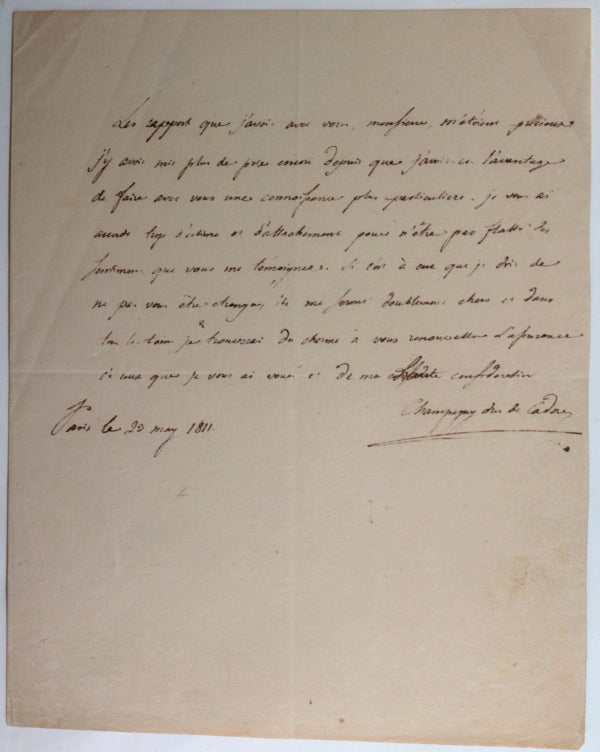 Les rapport que j'avois avec vous, monsieur, m'étoient précieux
j'y avois mis plus de prix encore depuis que j'avois eu l'avantage
de faire avec vous une connoissance plus particuliere. je vous ai
accordé trop d'estime et d'attachement pour n'être pas flatté des
sentimens que vous me témoignez. Si c'est à eux que je dois de
ne pas vous être étranger, ils me seront doublement chers et dans
tous les tems je trouverai du charme à vous renouveller l'assurance
de ceux que je vous ai voués et de ma consideration
Champagny duc de Cadore
Paris le 23 may 1811.